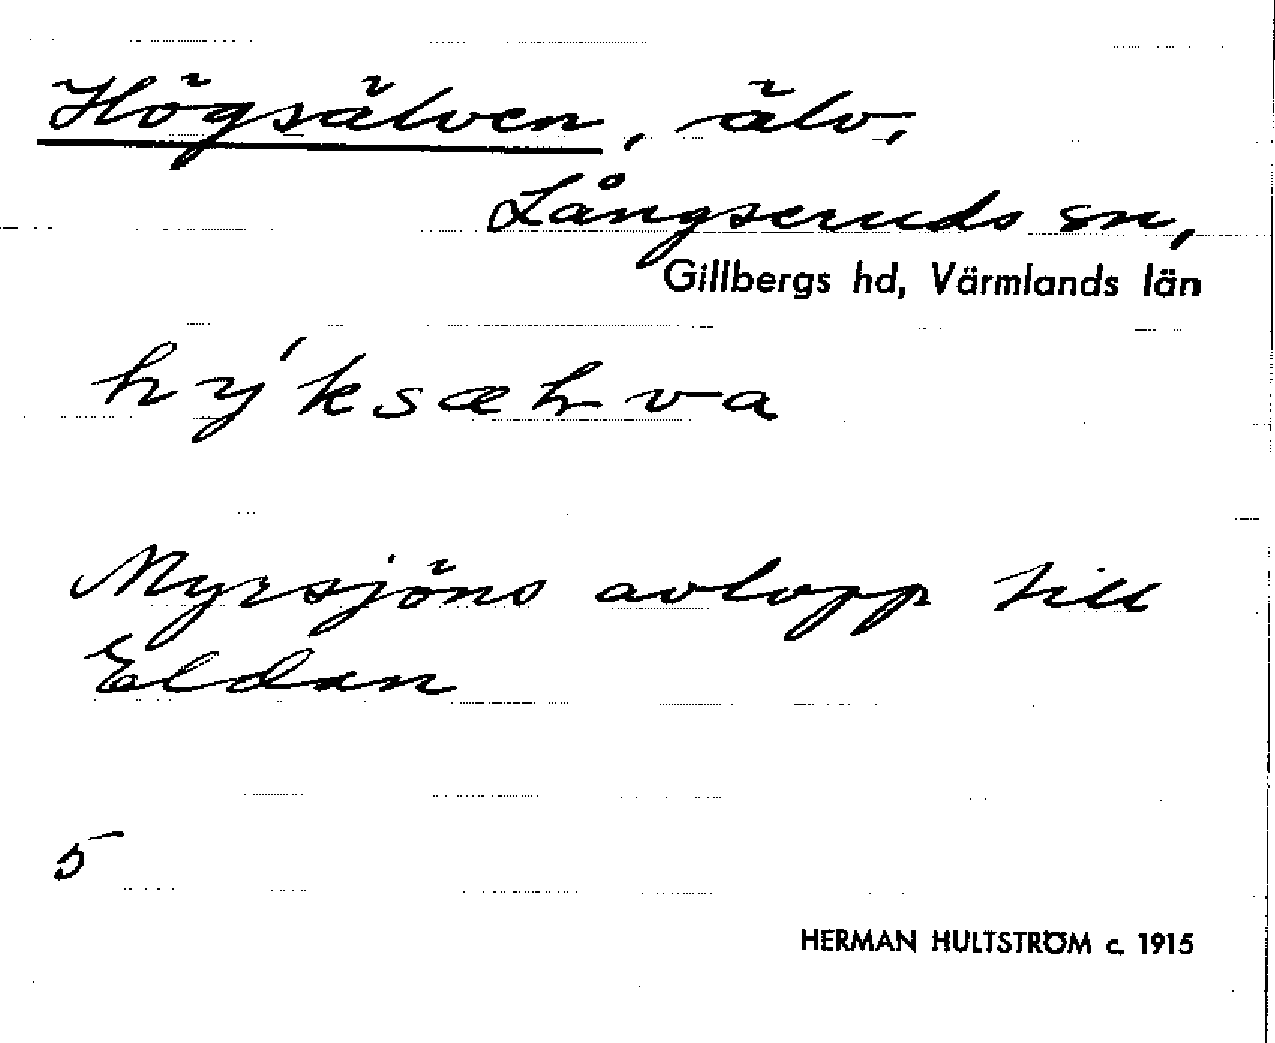 Högsälven, älv,
Långseruds sn,
Gillbergs hd, Värmlands län
hýksæhva
Myrsjöns avlopp till
Eldan
5
HERMAN HULTSTRÖM c. 1915